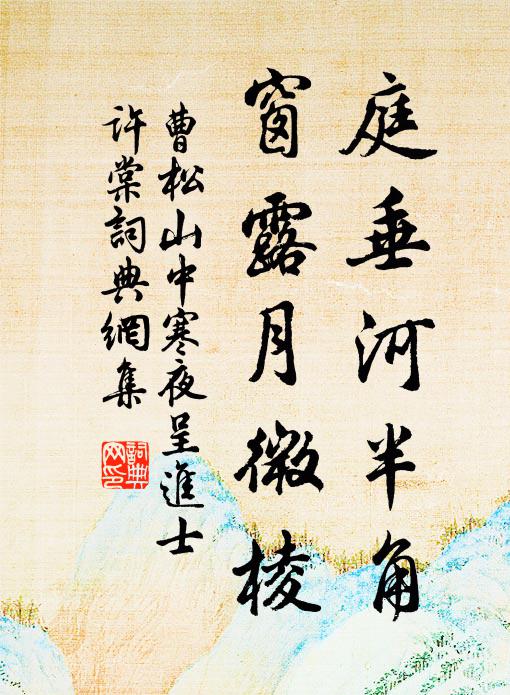 庭垂河半角
窗露月微棱
曹松山中寒夜呈進士
許棠詞典網集
詞典網印